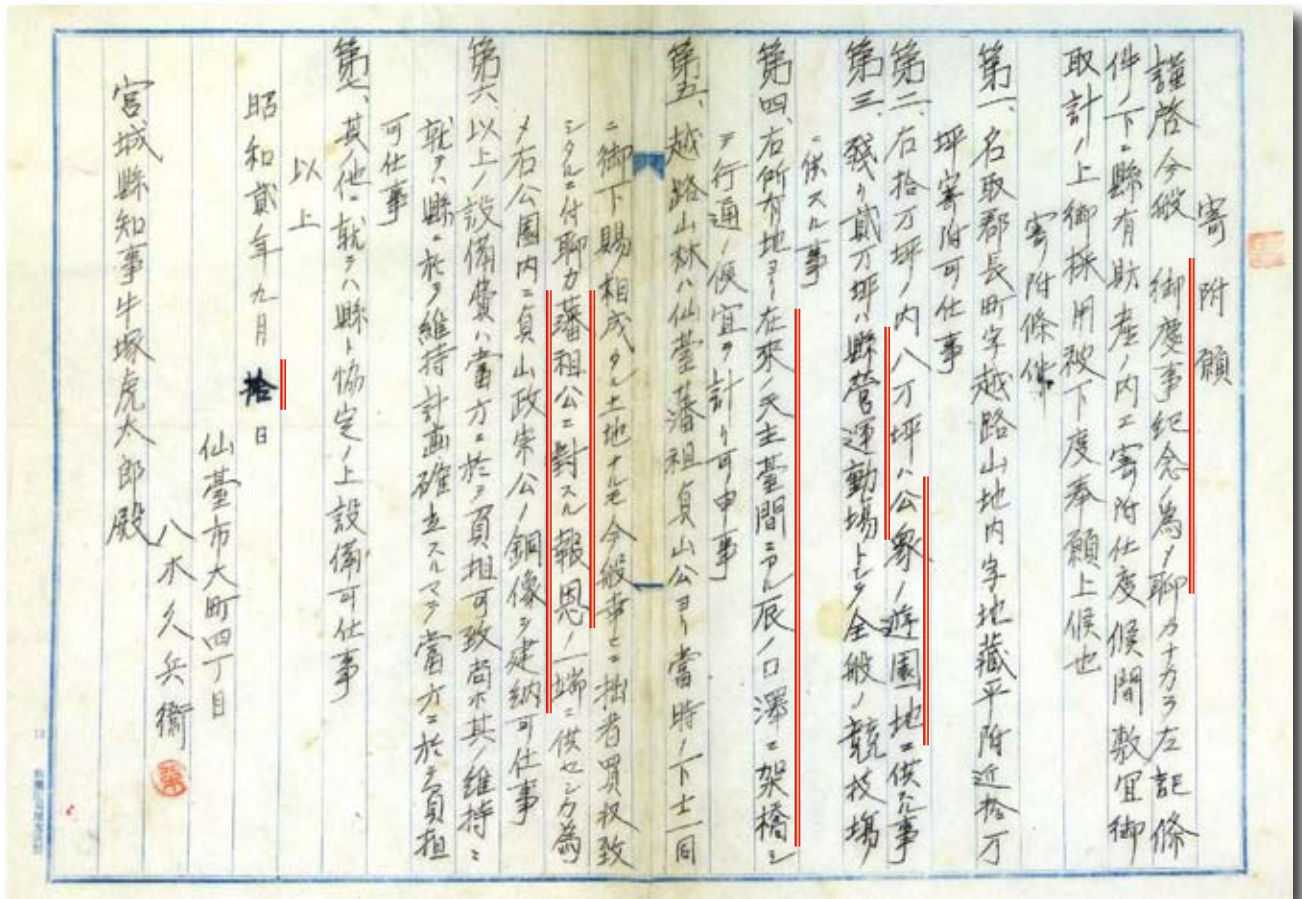 寄附願
謹啓今般 御慶事紀念ノ為メ聊カナカラ左記條
件ノ下ニ縣有財産ノ内エ寄附仕度候間敷宜御
取計ノ上御採用被下度奉願上候也
寄附條件
第一、名取郡長町字越路山地内字地蔵平附近拾万
坪寄附可仕事
第二、右拾万坪ノ内八万坪ハ公衆ノ遊園地ニ供スル事
第三、残リ貳万坪ハ縣営運動場トシテ全般ノ競技場
ニ供スル事
第四、右所有地ヨリ在来ノ天主臺間ニアル辰ノ口澤ニ架橋シ
テ行通ノ便宜ヲ計リ可申事
第五、越路山林ハ仙臺藩祖貞山公ヨリ當時ノ下士一同
ニ御下賜相成タル土地ナルモ今般幸ヒニ拙者買収致
シタルニ付聊カ藩祖公ニ對スル報恩ノ一端ニ供センカ為
メ右公園内ニ貞山政宗公ノ銅像ヲ建納可仕事
第六、以上ノ設備費ハ當方ニ於テ負担可致尚ホ其ノ維持ニ
就テハ縣ニ於テ維持計画確立スルマテ當方ニ於テ負担
可仕事
第七、其ノ他ニ就テハ縣ト協定ノ上設備可仕事
以上
昭和貳年九月拾日
仙臺市大町四丁目
八木久兵衛
宮城縣知事牛塚虎太郎殿